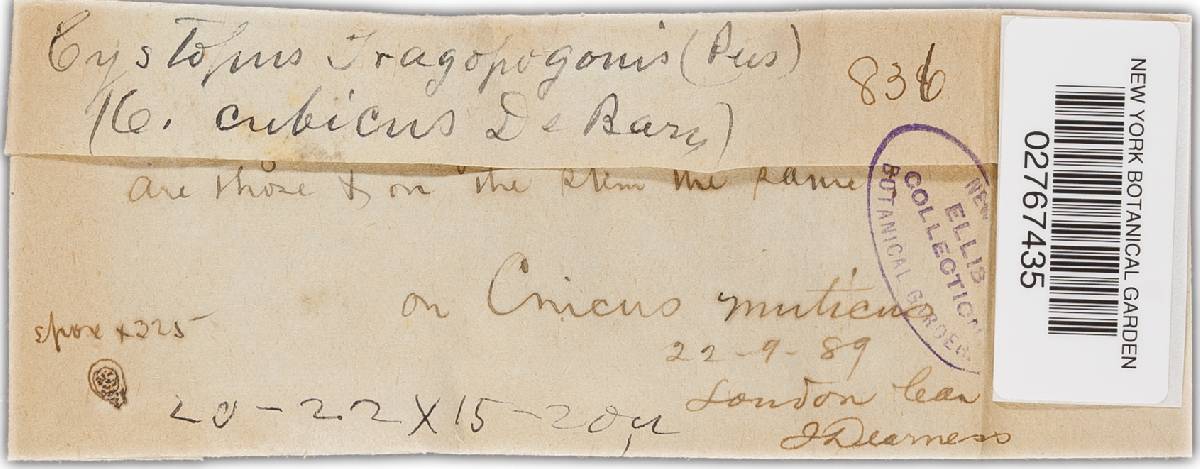 Cystopus Tragopogonis (Pers)
836
(C. cubicus De Bary)
are those & on the stem the same
on Cnicus muticus
22-9-89
spore x325
20-22X15-20µ
London Can
J Dearness
NEW
ELLIS
COLLECTION
BOTANICAL GARDEN
NEW YORK BOTANICAL GARDEN
02767435